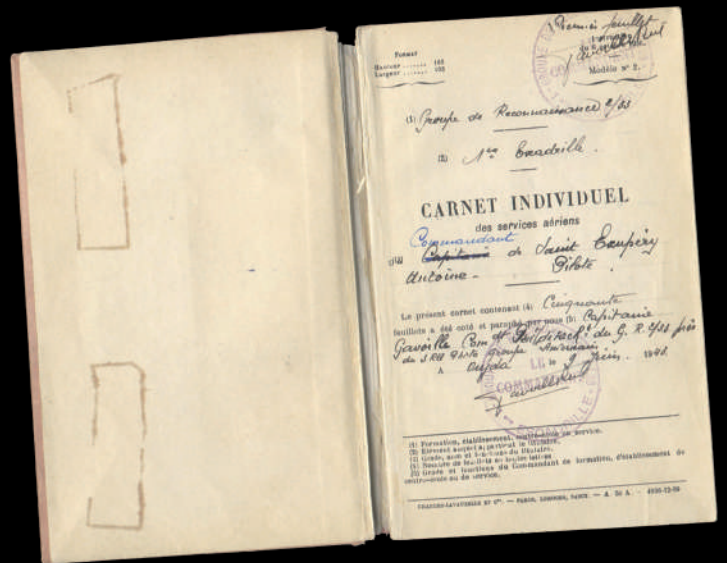 Premier feuillet
Format
Hauteur ....... 165
Largeur ....... 103
Modèle n° 2.
(1) Groupe de Reconnaissance 2/33
(2) 1ère Escadrille.
CARNET INDIVIDUEL
des services aériens
Commandant
du Capitaine de Saint Exupéry
Antoine - Pilote.
Le présent carnet contenant (4) Cinquante
feuillets a été coté et paraphé par nous (5) Capitaine
Gavoille Comdt du G. R. 2/33 près
du groupe Américain
A Oujda LE 9 Juin. 1943.
LE
COMMANDANT
(1) Formation, établissement, centre-école ou service.
(2) Elément auquel appartient le titulaire.
(3) Grade, nom et fonctions du titulaire.
(4) Nombre de feuillets en toutes lettres
(5) Grade et fonctions du Commandant de formation, d'établissement de
centre-école ou de service.
CHARLES-LAVAUZELLE ET Cie. — PARIS, LIMOGES, NANCY. —